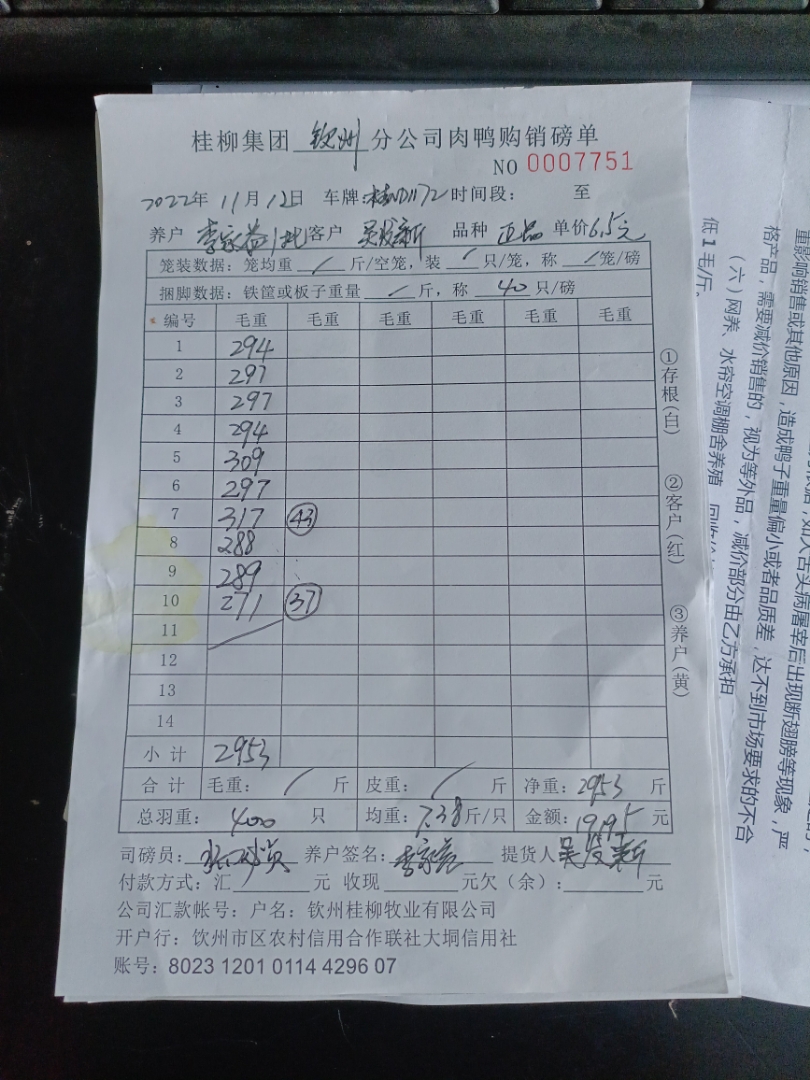 桂柳集团 钦州 分公司肉鸭购销磅单
NO 0007751
2022年 11月 12日 车牌: 时间段: 至
养户 李家益 客户 吴发新 品种 正品 单价6.5元
笼装数据: 笼均重 / 斤/空笼, 装 / 只/笼, 称 / 笼/磅
捆脚数据: 铁筐或板子重量 / 斤, 称 40 只/磅
编号 毛重 毛重 毛重 毛重 毛重 毛重
1 294
2 297
3 297
4 294
5 309
6 297
7 317 43
8 288
9 289
10 271 37
11
12
13
14
小计 2953
合计 毛重: / 斤 皮重: / 斤 净重: 2953 斤
总羽重: 400 只 均重: 7.38斤/只 金额: 19195 元
司磅员: 养户签名: 李家益 提货人 吴发新
付款方式: 汇 元 收现 元欠(余): 元
公司汇款帐号: 户名: 钦州桂柳牧业有限公司
开户行: 钦州市区农村信用合作联社大垌信用社
账号: 8023 1201 0114 4296 07
①存根(白)
②客户(红)
③养户(黄)
重影响销售或其他原因, 造成鸭子重量偏小或者品质差, 达不到市场要求的不合
格产品, 需要减价销售的, 视为等外品, 减价部分由乙方承担
(六) 网养、水帘空调棚舍养殖
低1毛/斤。